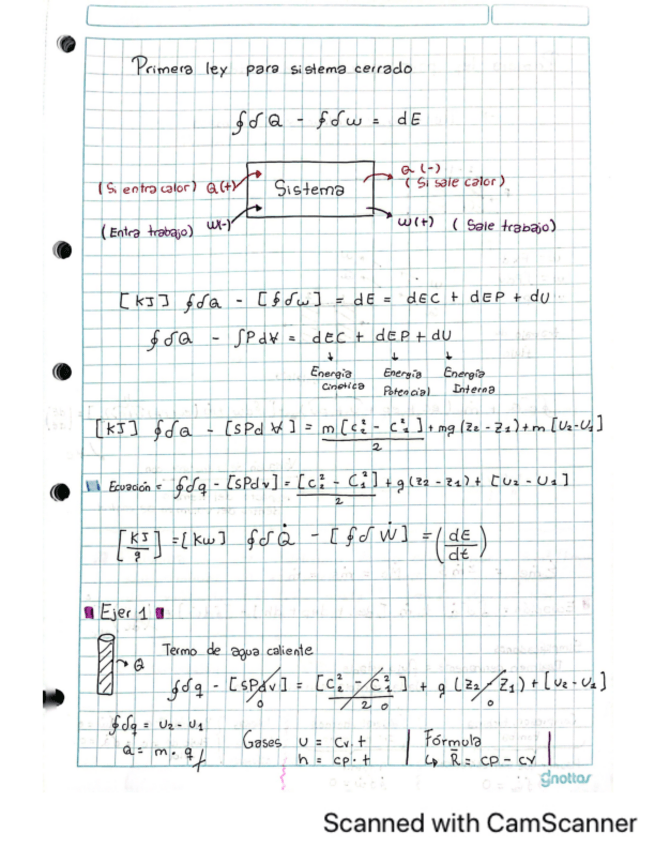 Primera ley para sistema cerrado
∮δQ - ∮δw = dE
(Si entra calor) Q(+)
Sistema
Q (-)
(Si sale calor)
(Entra trabajo) W(-)
W(+) (Sale trabajo)
[KJ] ∮δQ - [∮δw] = dE = dEC + dEP + dU
∮δQ - ∫Pd∀ = dEC + dEP + dU
↓ ↓ ↓
Energia Energia Energia
Cinetica Potencial Interna
[KJ] ∮δQ - [SPd∀] = m[C₂² - C₁²]/2 + mg(Z₂ - Z₁) + m[U₂-U₁]
Ecuación = ∮δq - [SPdv] = [C₂² - C₁²]/2 + g(Z₂ - Z₁) + [U₂ - U₁]
[KJ/s] = [KW] ∮δQ̇ - [∮δẆ] = (dE/dt)
Ejer 1
Termo de agua caliente
Q
∮δq - [SPdv] = [C₂² - C₁²]/2 + g(Z₂ - Z₁) + [U₂ - U₁]
0 0 0
∮δq = U₂ - U₁
Q = m · q
Gases U = Cv. t
h = cp · t
Fórmula
↳ R̄ = cp - cv
gnottas
Scanned with CamScanner